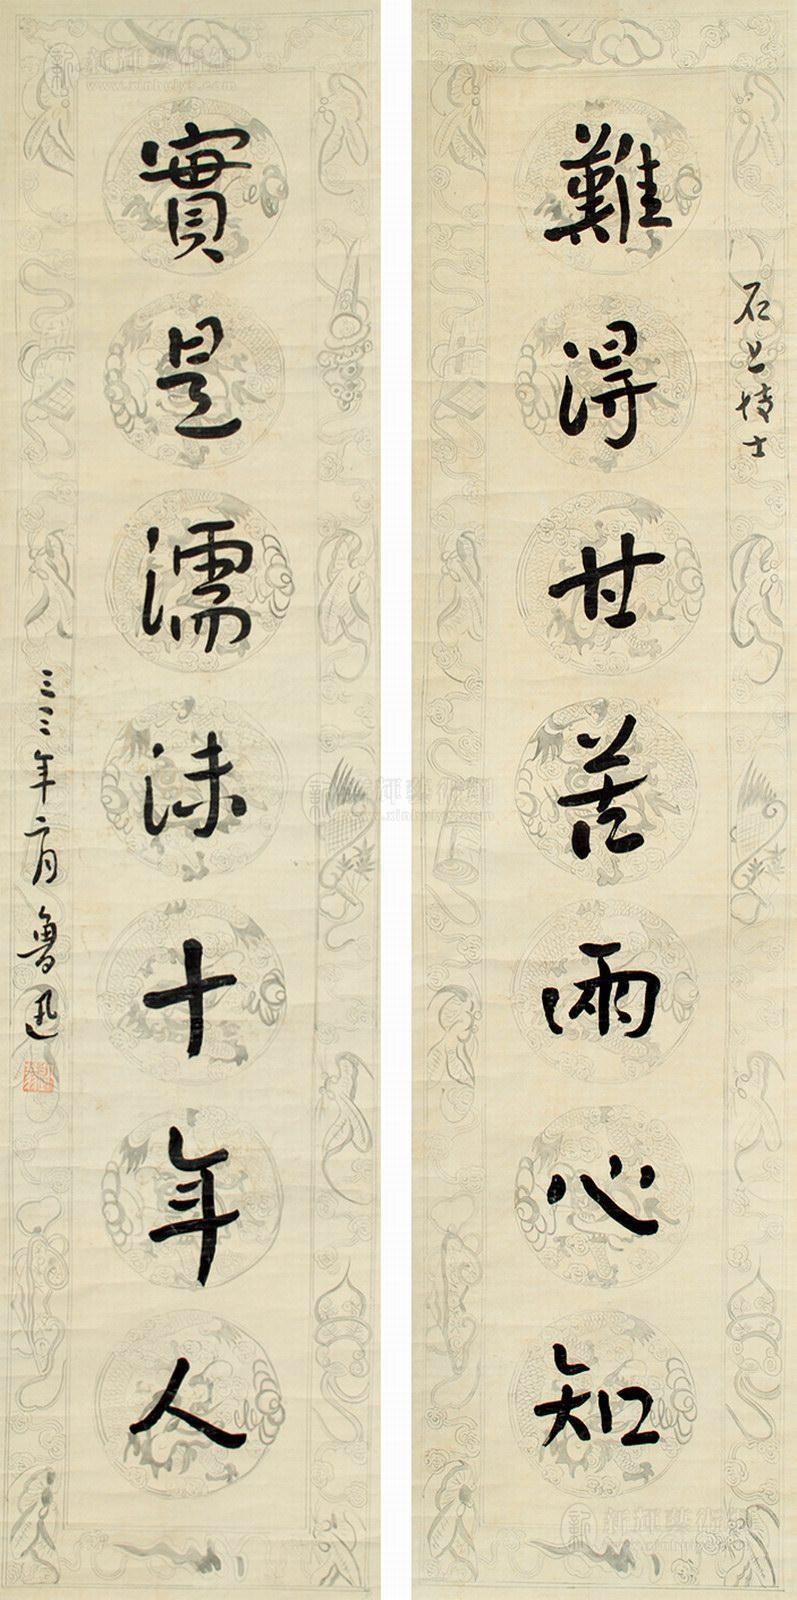 石上技士
難得甘苦兩心知
實是濡沫十年人
三三年二月 魯迅
新輝藝術網
www.xinhuiys.com